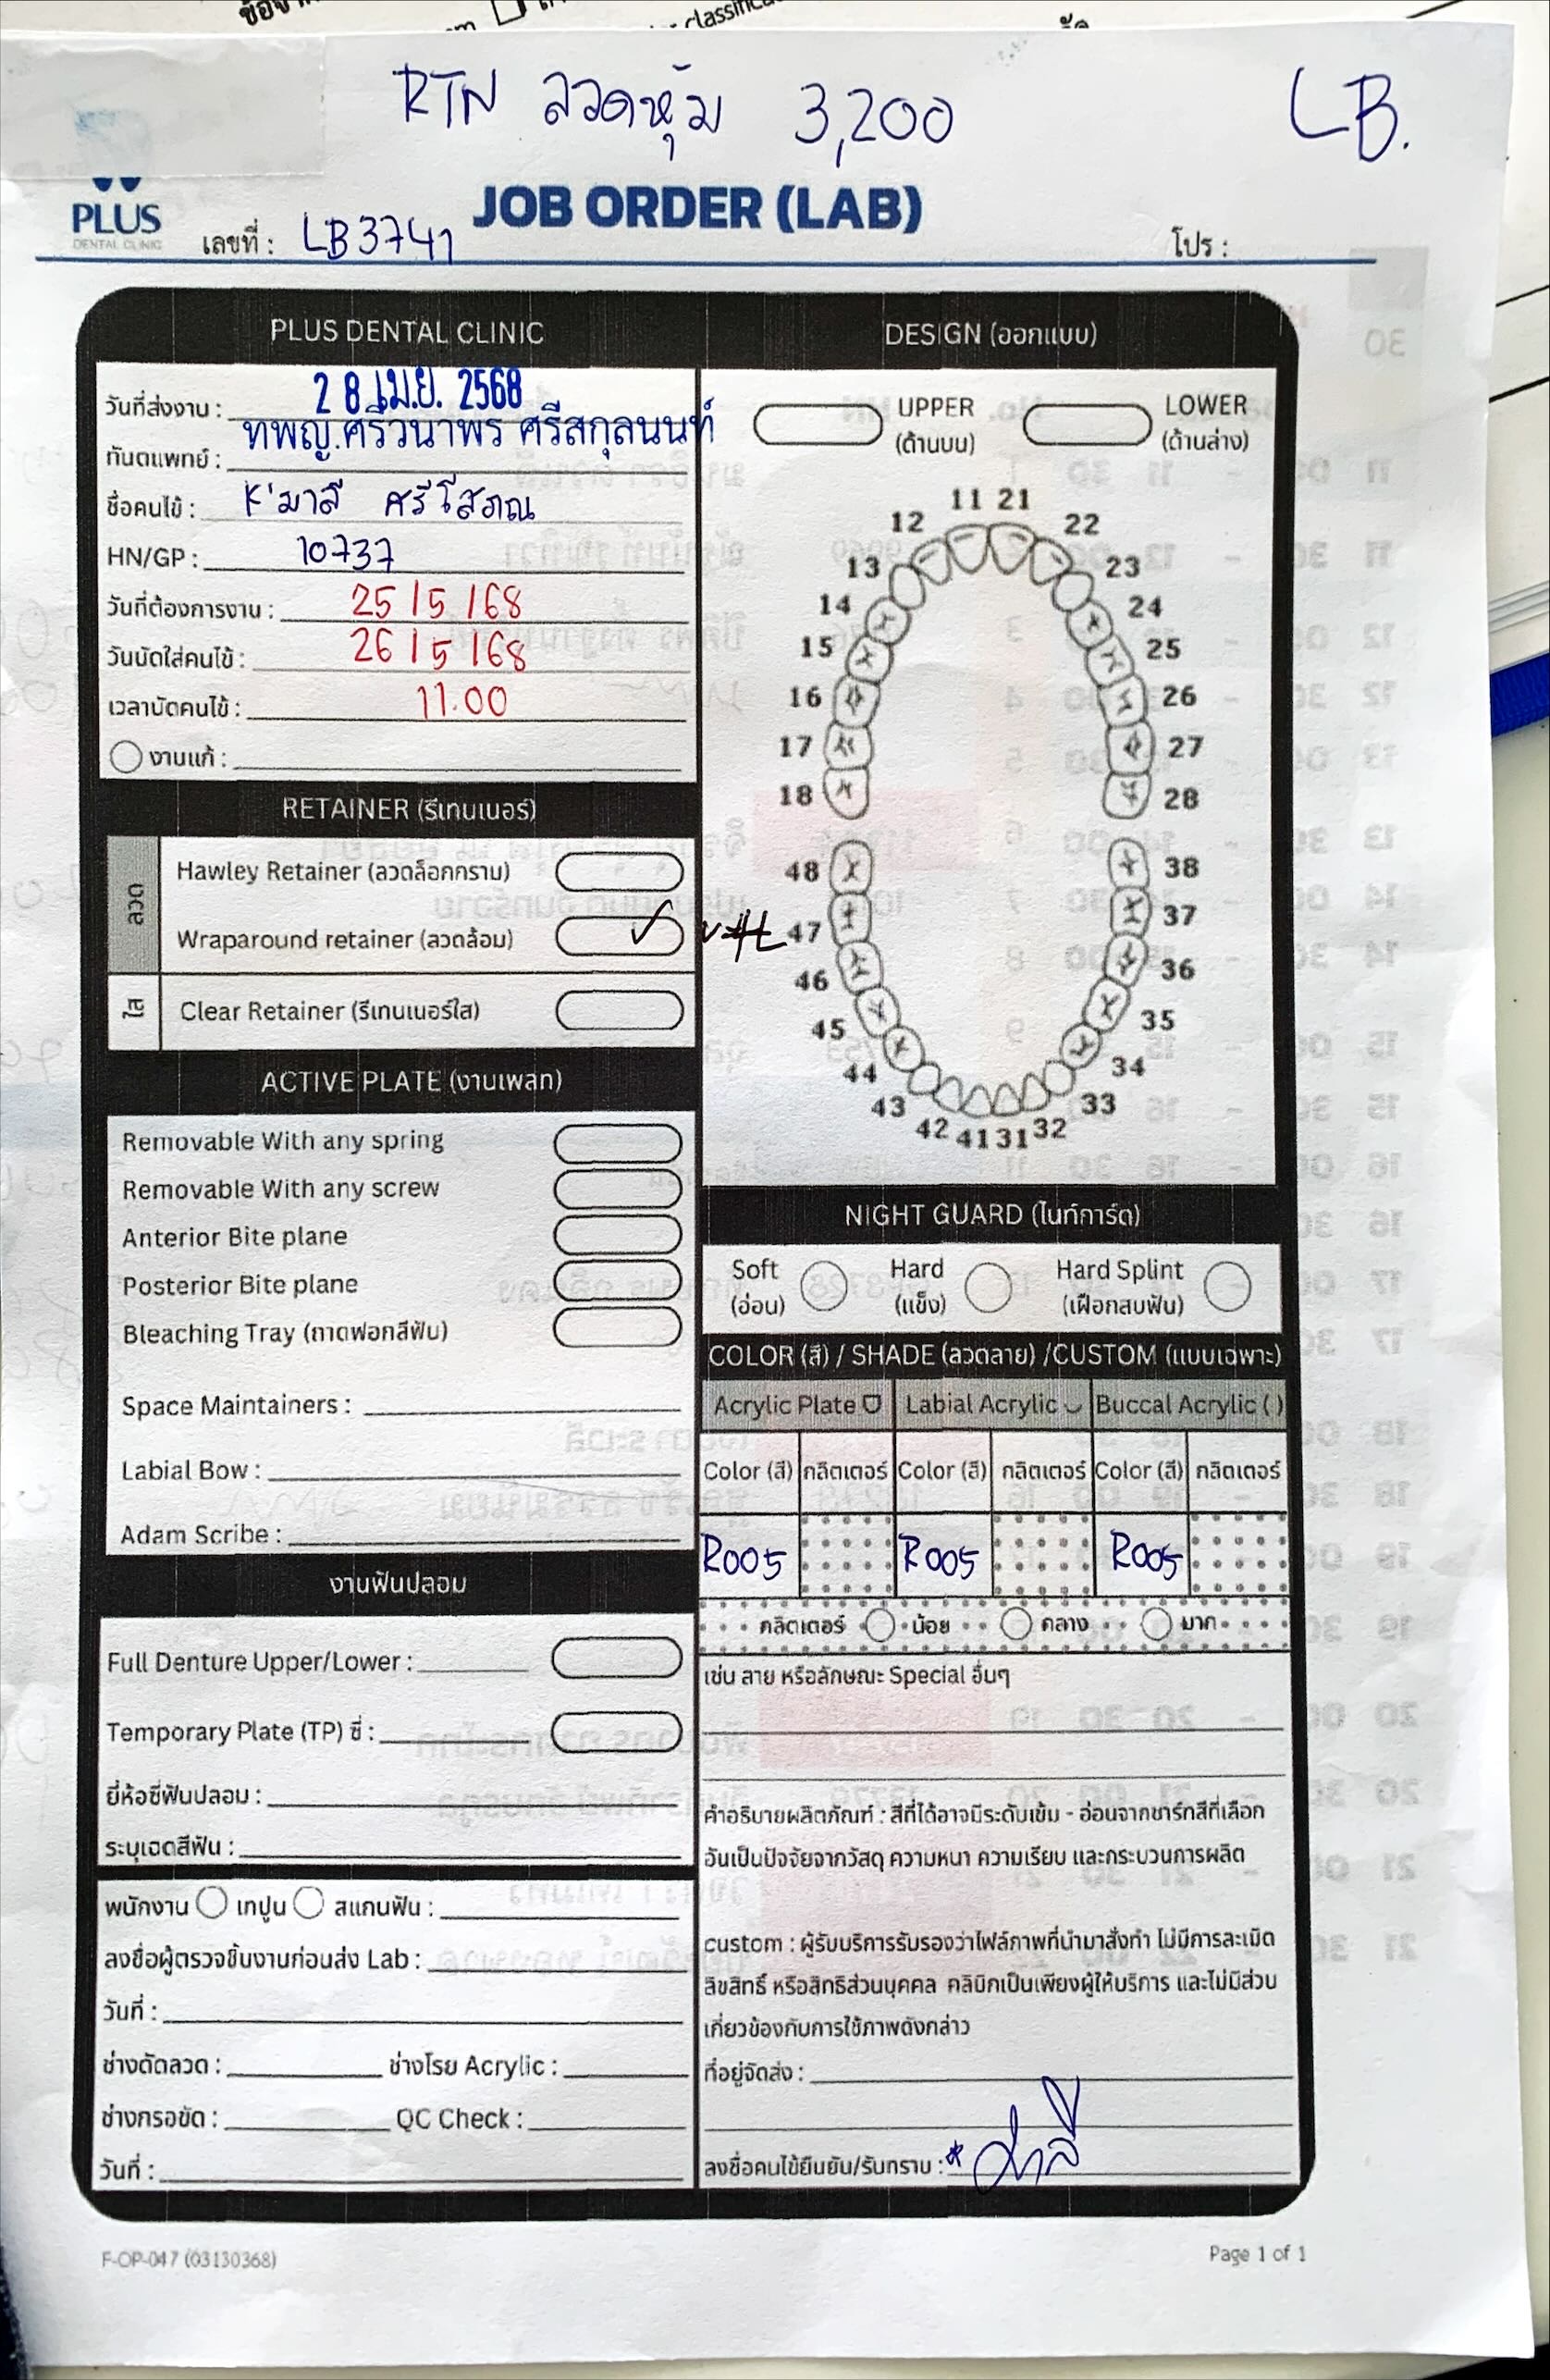 RTN ลวดหุ้ม 3,200
LB.
PLUS
DENTAL CLINIC
JOB ORDER (LAB)
เลขที่ : LB3741
โปร :
PLUS DENTAL CLINIC
วันที่ส่งงาน : 28 เม.ย. 2568
ทันตแพทย์ : ทพญ.ศรีวนาพร ศรีสกุลนนท์
ชื่อคนไข้ : K'มาลี ศรีโสภณ
HN/GP : 10737
วันที่ต้องการงาน : 25/5/68
วันนัดใส่คนไข้ : 26/5/68
เวลานัดคนไข้ : 11.00
งานแก้ :
RETAINER (รีเทนเนอร์)
ลวด
Hawley Retainer (ลวดล็อกกราม)
Wraparound retainer (ลวดล้อม) ✓
ใส
Clear Retainer (รีเทนเนอร์ใส)
ACTIVE PLATE (งานเพลท)
Removable With any spring
Removable With any screw
Anterior Bite plane
Posterior Bite plane
Bleaching Tray (ถาดฟอกสีฟัน)
Space Maintainers :
Labial Bow :
Adam Scribe :
งานฟันปลอม
Full Denture Upper/Lower :
Temporary Plate (TP) ซี่ :
ยี่ห้อซี่ฟันปลอม :
ระบุเฉดสีฟัน :
พนักงาน เทปูน สแกนฟัน :
ลงชื่อผู้ตรวจชิ้นงานก่อนส่ง Lab :
วันที่ :
ช่างดัดลวด : ช่างโรย Acrylic :
ช่างกรอขัด : QC Check :
วันที่ :
DESIGN (ออกแบบ)
UPPER LOWER
(ด้านบน) (ด้านล่าง)
11 21
12 22
13 23
14 24
15 25
16 26
17 27
18 28
48 38
47 37
46 36
45 35
44 34
43 33
42 41 31 32
NIGHT GUARD (ไนท์การ์ด)
Soft Hard Hard Splint
(อ่อน) (แข็ง) (เฝือกสบฟัน)
COLOR (สี) / SHADE (ลวดลาย) /CUSTOM (แบบเฉพาะ)
Acrylic Plate Labial Acrylic Buccal Acrylic ( )
Color (สี) กลิตเตอร์ Color (สี) กลิตเตอร์ Color (สี) กลิตเตอร์
R005 R005 R005
กลิตเตอร์ น้อย กลาง มาก
เช่น ลาย หรือลักษณะ Special อื่นๆ
คำอธิบายผลิตภัณฑ์ : สีที่ได้อาจมีระดับเข้ม - อ่อนจากชาร์ทสีที่เลือก
อันเป็นปัจจัยจากวัสดุ ความหนา ความเรียบ และกระบวนการผลิต
custom : ผู้รับบริการรับรองว่าไฟล์ภาพที่นำมาสั่งทำ ไม่มีการละเมิด
ลิขสิทธิ์ หรือสิทธิส่วนบุคคล คลินิกเป็นเพียงผู้ให้บริการ และไม่มีส่วน
เกี่ยวข้องกับการใช้ภาพดังกล่าว
ที่อยู่จัดส่ง :
ลงชื่อคนไข้ยืนยัน/รับทราบ : *
F-OP-047 (03130368)
Page 1 of 1